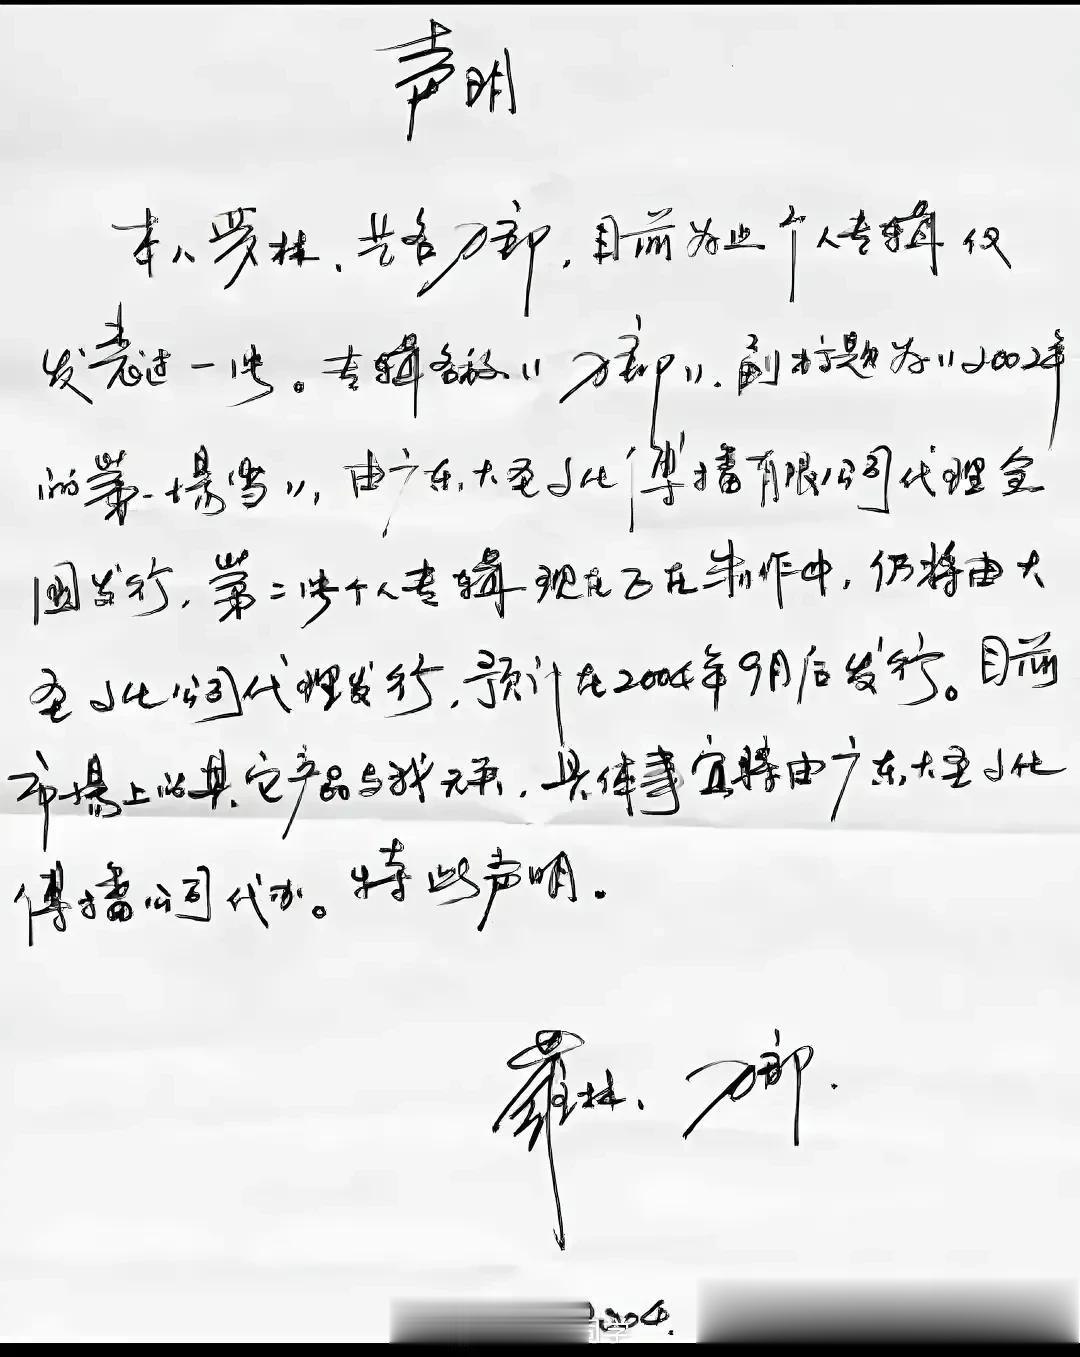 声明
本人罗林、艺名刀郎，目前为止个人专辑仅
发表过一张。专辑名称"刀郎"，副标题为"2002年
的第一场雪"，由广东大圣文化传播有限公司代理全
国发行，第二张个人专辑现在正在制作中，仍将由大
圣文化公司代理发行，预计在2004年9月后发行。目前
市场上的其它产品与我无关，具体事宜将由广东大圣文化
传播公司代办。特此声明。
罗林、刀郎.
2004.